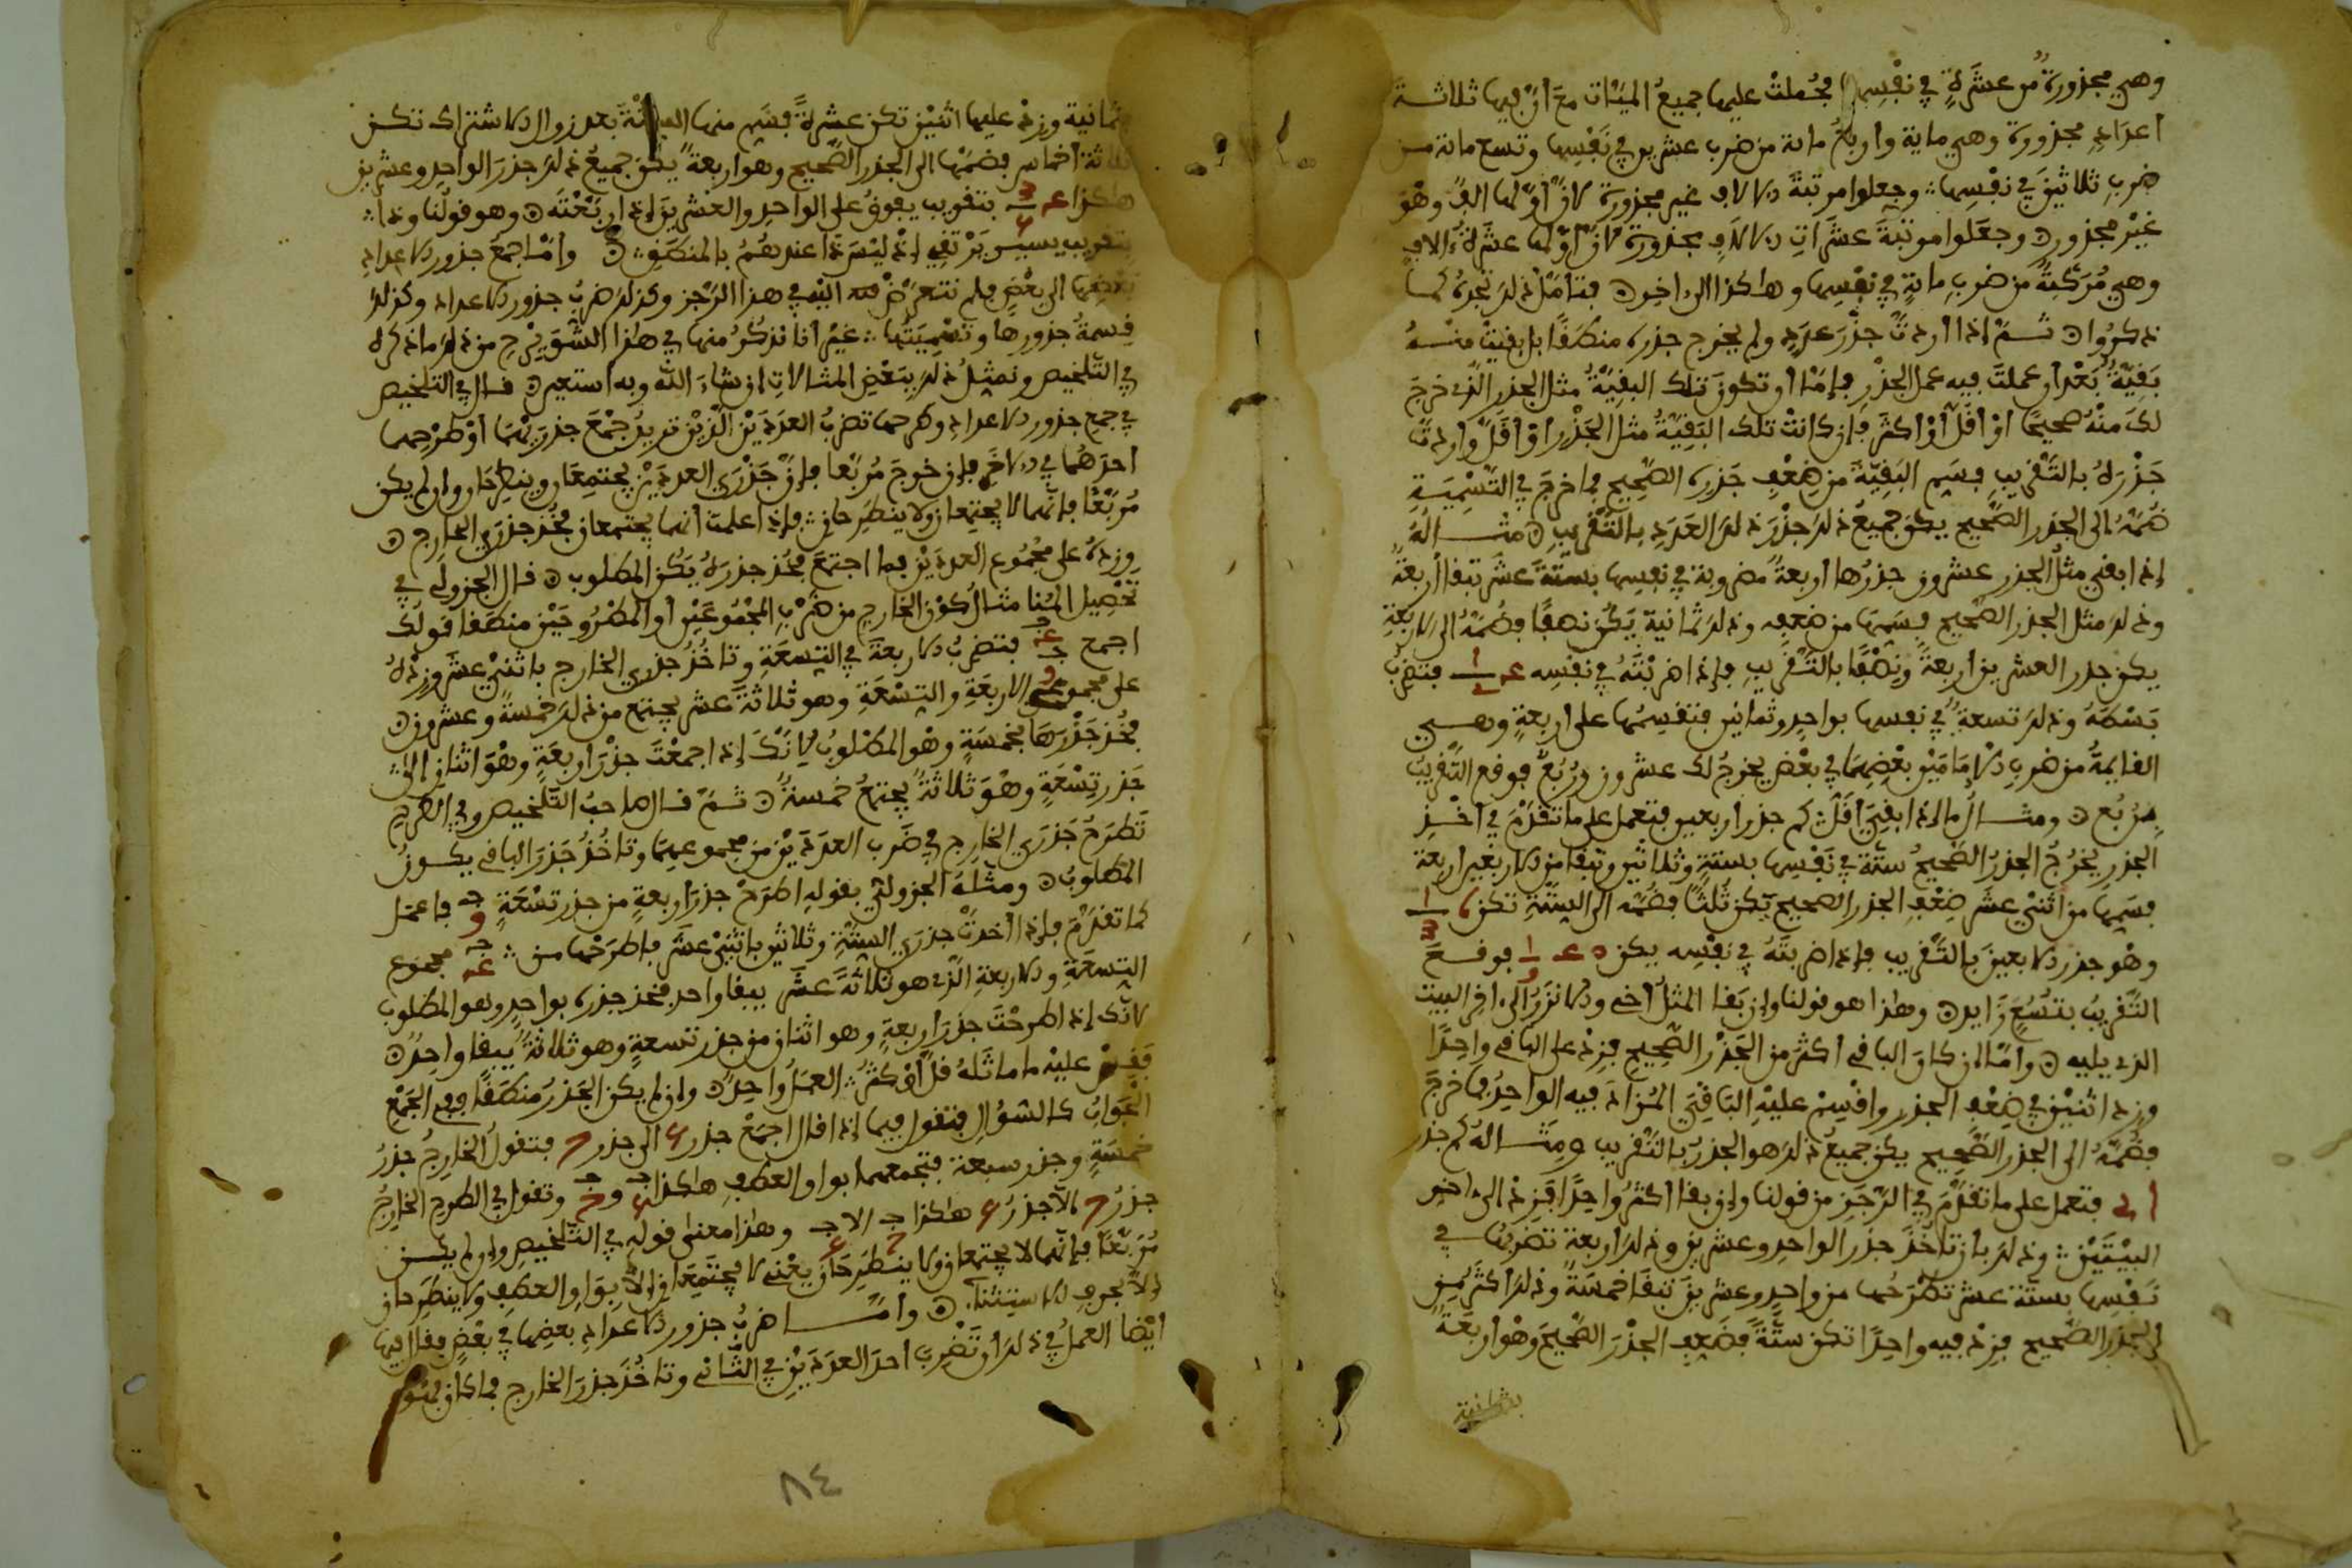 وهي مجذورة من عشرة في نفسها فجعلت عليها جميع الميئات مع أن فيها ثلاثة
أعداد مجذورة وهي ماية وأربع مائة من ضرب عشرين في نفسها وتسع مائة من
ضرب ثلاثين في نفسها وجعلوا مرتبة الالاف غير مجذورة لان أولها الف وهو
غير مجذور وجعلوا مرتبة عشرات الالاف مجذورة لان أولها عشرة ءالاف
وهي مركبة من ضرب مائة في نفسها وهاكذا الى ءاخره فتأمل ذلك تجده كما
ذكروا ثم إذا أردت جذر عدد ولم يخرج جذره منطقا بل بقيت منه
بقية بعد أن عملت فيه عمل الجذر فإما أن تكون تلك البقية مثل الجذر الذي خرج
لك منه صحيحا أو أقل أو أكثر فإن كانت تلك البقية مثل الجذر أو أقل وأردت
جذره بالتقريب فسم البقية من ضعف جذره الصحيح فما خرج في التسمية
ضمه إلى الجذر الصحيح يكون جميع ذلك جذر ذلك العدد بالتقريب مثاله
إذا بقي مثل الجذر عشرون جذرها أربعة مضروبة في نفسها بستة عشر تبقا أربعة
وذلك مثل الجذر الصحيح فسمها من ضعفه وذلك ثمانية يكن نصفا فضمه إلى الاربعة
يكن جذر العشرين أربعة ونصفا بالتقريب فإذا ضربته في نفسه فتضرب
بسطه وذلك تسعة في نفسها بواحد وثمانين فتقسمها على أربعة وهي
القائمة من ضرب الإمامين بعضهما في بعض يخرج لك عشرون وربع فوقع التقريب
بربع ومثال ما إذا بقي أقل كم جذر أربعين فتعمل على ما تقدم في أخذ
الجذر يخرج الجذر الصحيح ستة في نفسها بستة وثلاثين وتبقا من الاربعين أربعة
فسمها من اثني عشر ضعف الجذر الصحيح يكن ثلثا فضمه إلى الستة تكن
وهو جذر الاربعين بالتقريب فإذا ضربته في نفسه يكن فوقع
التقريب بتسع زايد وهاذا هو قولنا وإن بقا المثل أخي والانزر إلى ءاخر البيت
الذي يليه وأما إن كان الباقي أكثر من الجذر الصحيح فزد على الباقي واحدا
وزد اثنين في ضعف الجذر واقسم عليه الباقي المزاد فيه الواحد فما خرج
فضمه إلى الجذر الصحيح يكن جميع ذلك هو الجذر بالتقريب ومثاله كم جذر
فتعمل على ما تقدم في الرجز من قولنا وإن بقا أكثر واحدا فزد إلى ءاخر
البيتين وذلك بان تأخذ جذر الواحد وعشرين وذلك أربعة تضربها في
نفسها بستة عشر تطرحها من واحد وعشرين تبقا خمسة وذلك أكثر من
الجذر الصحيح فزد فيه واحدا تكن ستة فضعف الجذر الصحيح وهو أربعة
بثمانية
بثمانية وزد عليها اثنين تكن عشرة فسم منها الستة بعد زوال الاشتراك تكن
ثلاثة أخماس فضمها إلى الجذر الصحيح وهو أربعة يكون جميع ذلك جذر الواحد وعشرين
هاكذا بتقريب يفوق على الواحد والعشرين إذا ربعته وهو قولنا وذا
بتقريب يسير يرتقي إذ ليس ذا عندهم بالمنطق وأما جمع جذور الاعداد
بعضها إلى بعض فلم نتعرض له البتة في هذا الرجز وكذلك ضرب جذور الاعداد وكذلك
قسمة جذورها وتسميتها غير أنا نذكر منها في هاذا الشرح من ذلك ما ذكره
في التلخيص ونمثل ذلك ببعض المثالات إن شاء الله وبه أستعين قال في التلخيص
في جمع جذور الاعداد وطرحها تضرب العددين الذين تريد جمع جذريهما أو طرحهما
أحدهما في الاخر فإن خرج مربعا فإن جذري العددين يجتمعان وينطرحان وإن لم يكن
مربعا فإنهما لا يجتمعان ولا ينطرحان فإذا علمت أنهما يجتمعان فخذ جذري الخارج
وزده على مجموع العددين فما اجتمع فخذ جذره يكن المطلوب قال الجزولي في
تحصيل المنا مثال كون الخارج من ضرب المجموعين أو المطروحين منطقا قولك
اجمع فتضرب الاربعة في التسعة وتاخذ جذري الخارج باثني عشر وزده
على مجموع الاربعة والتسعة وهو ثلاثة عشر يجتمع من ذلك خمسة وعشرون
فخذ جذرها بخمسة وهو المطلوب لانك إذا جمعت جذر أربعة وهو اثنان إلى
جذر تسعة وهو ثلاثة يجتمع خمسة ثم قال صاحب التلخيص وفي الطرح
تطرح جذري الخارج في ضرب العددين من مجموعهما وتاخذ جذر الباقي يكون
المطلوب ومثله الجزولي بقوله اطرح جذر أربعة من جذر تسعة فاعمل
كما تقدم فإذا أخذت جذري الستة وثلاثين باثني عشر فاطرحها من مجموع
التسعة والاربعة الذي هو ثلاثة عشر يبقا واحد فخذ جذره بواحد وهو المطلوب
لانك إذا طرحت جذر أربعة وهو اثنان من جذر تسعة وهو ثلاثة يبقا واحد
فقس عليه ما ماثله قل أو كثر العمل واحد وإن لم يكن الجذر منطقا ففي الجمع
الجواب كالسؤال فتقول فيما إذا قال اجمع جذر إلى جذر فتقول الخارج جذر
خمسة وجذر سبعة فتجمعهما بواو العطف هاكذا وتقول في الطرح الخارج
جذر إلا جذر هاكذا وهاذا معنى قوله في التلخيص وإن لم يكن
مربعا فإنهما لا يجتمعان ولا ينطرحان يعني لا يجتمعان إلا بواو العطف ولا ينطرحان
إلا بحرف الاستثناء وأما ضرب جذور الاعداد بعضها في بعض فقال فيها
أيضا العمل في ذلك أن تضرب أحد العددين في الثاني وتاخذ جذر الخارج فما كان فهو
٨٤